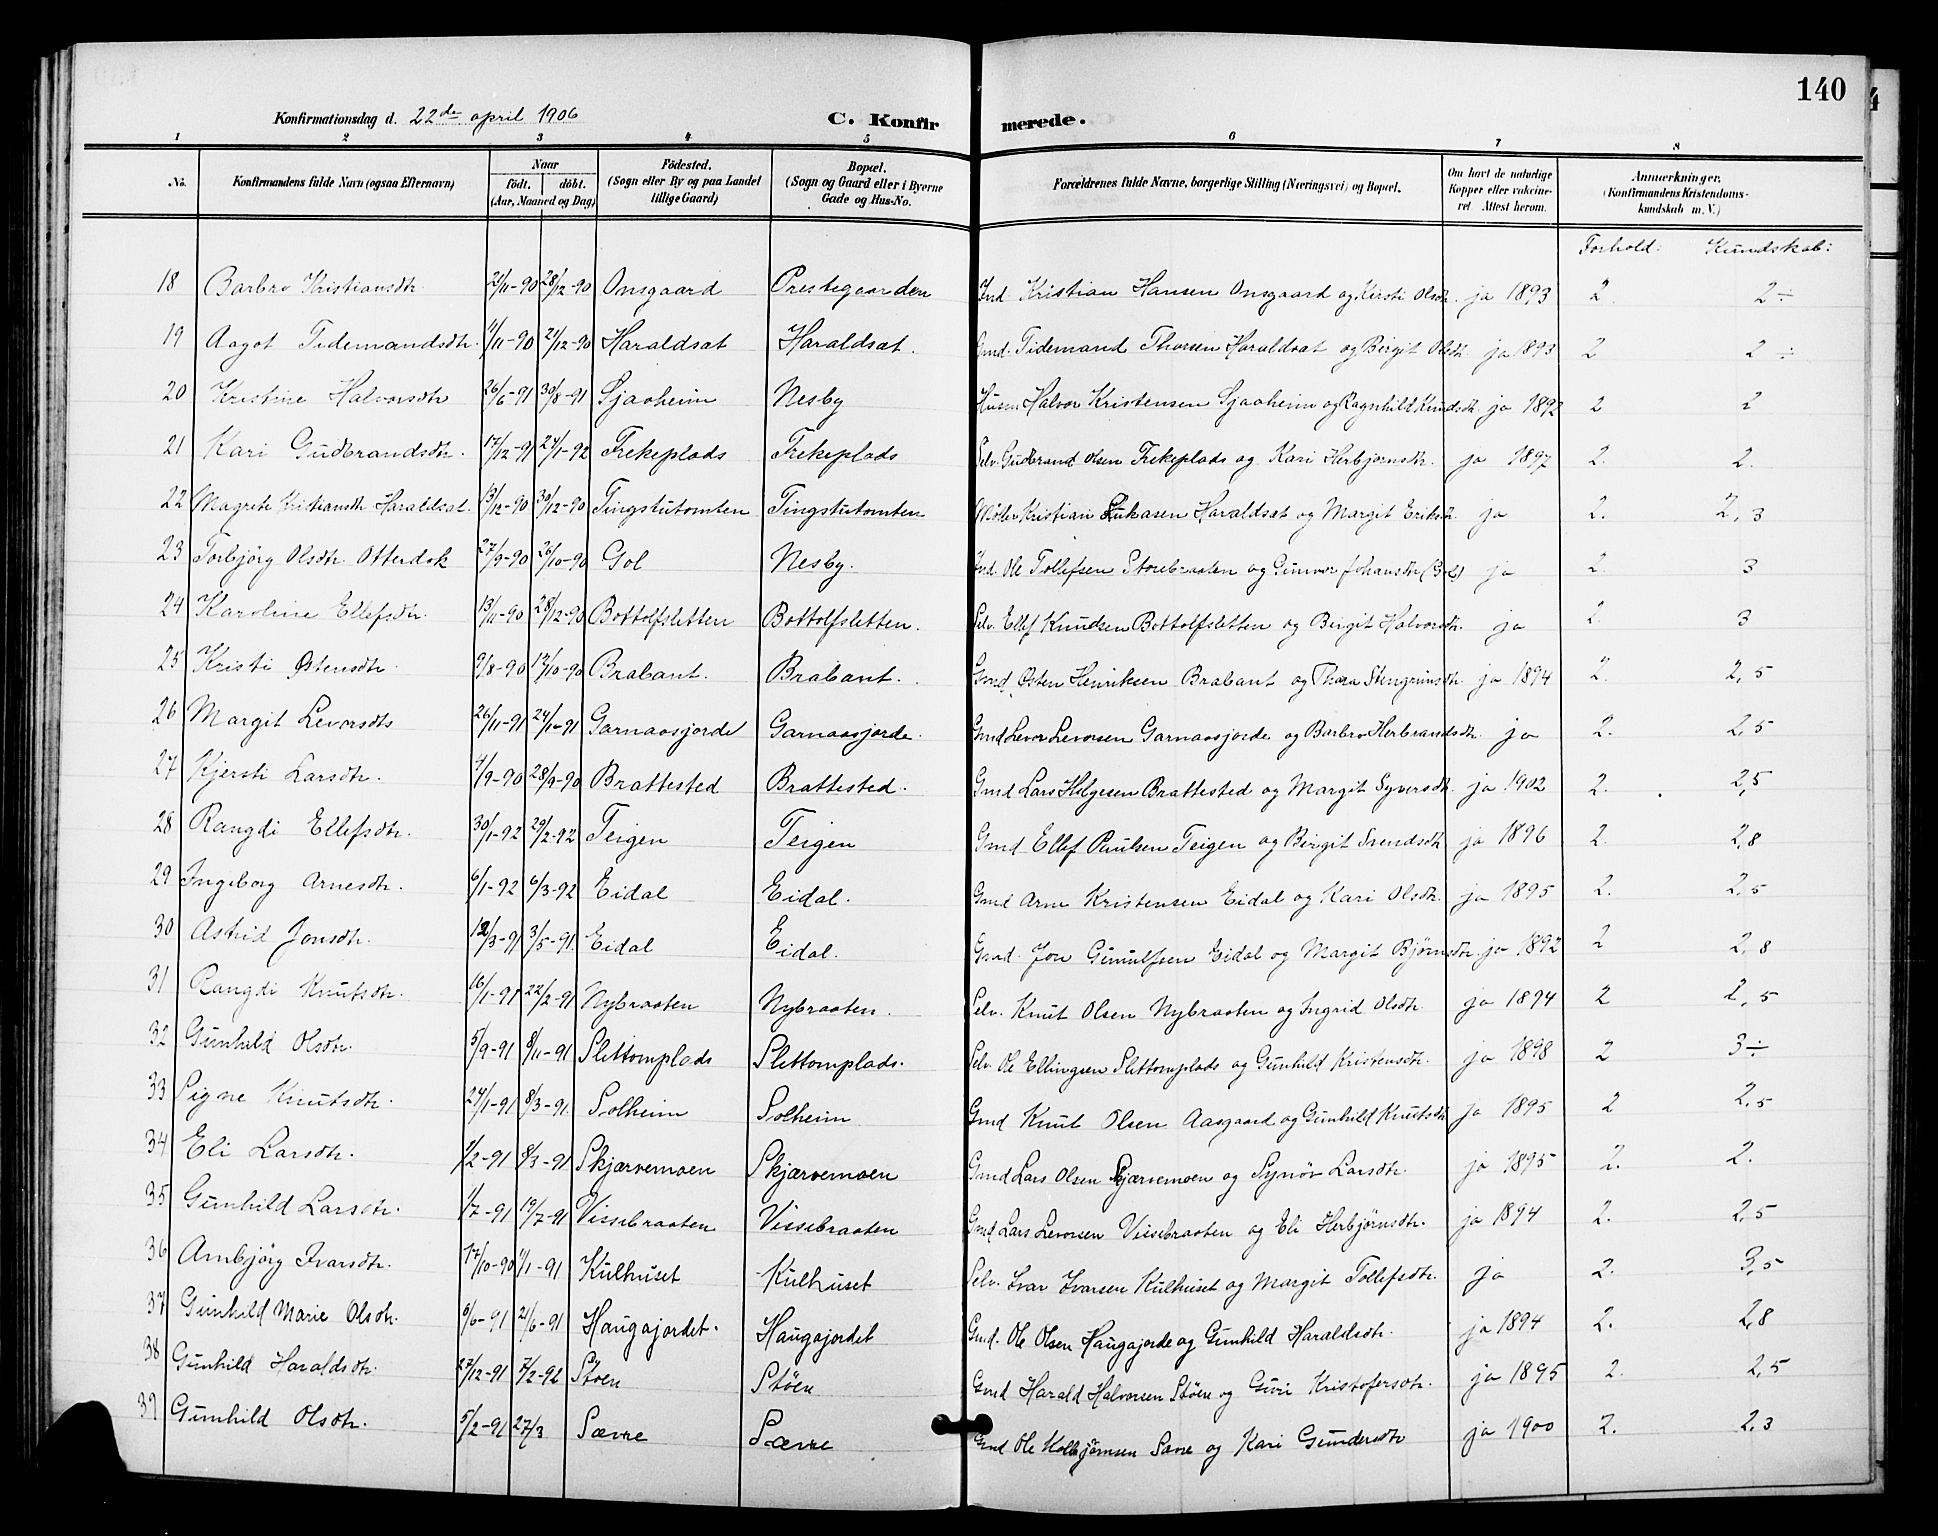 140
Konfirmationsdag d. 22de april 1906
C. Konfirmerede.
1 2 3 4 5 6 7 8
No. Konfirmandens fulde Navn (ogsaa Efternavn) Naar födt. döbt. (Aar, Maaned og Dag) Födested. (Sogn eller By og paa Landet tillige Gaard) Bopæl. (Sogn og Gaard eller i Byerne Gade og Hus-No. Forældrenes fulde Navne, borgerlige Stilling (Næringsvei) og Bopæl. Om havt de naturlige Kopper eller vakcineret Attest herom. Anmerkninger. (Konfirmandens Kristendomskundskab m. V.)
Forhold: Kundskab:
18 Barbro Kristiansdtr. 21/11-90 28/12-90 Onsgaard Prestegaarden Gmd Kristian Hansen Onsgaard og Kirsti Olsdtr. ja 1893 2 2 ÷
19 Aagot Tidemandsdtr. 11/11-90 21/12-90 Haraldsat Haraldsat. Gmd. Tidemand Thorsen Haraldsat og Birgit Olsdtr. ja 1893 2 2 ÷
20 Kristine Halvorsdtr 26/6-91 30/8-91 Sjaaheim Nesby Husm Halvor Kristensen Sjaaheim og Ragnhild Knudsdtr. ja 1892 2 2
21 Kari Gudbrandsdtr. 17/12-91 24/1-92 Trekeplads Trekeplads Selv. Gudbrand Olsen Trekeplads og Kari Herbjørnsdtr. ja 1897 2. 2.
22 Magrete Kristiansdtr Haraldsat. 13/12-90 30/12-90 Tingstutomten Tingstutomten Møller Kristian Lukasen Haraldsat og Margit Eriksdtr. ja 2. 2,3
23 Torbjörg Olsdtr. Otterdok 27/9-90 26/10-90 Gol Nesby. Gmd. Ole Tollefsen Storebraaten og Gunvor Johansdtr (Gol) ja 2. 3
24 Karoline Ellefsdtr. 13/11-90 28/12-90 Bottolfsletten Bottolfsletten. Selv. Ellef Knudsen Bottolfsletten og Birgit Halvorsdtr. ja 2. 3
25 Kristi Østensdtr. 9/8-90 12/10-90 Brabant. Brabant. Gmd Østen Henriksen Brabant og Thora Stengrimsdtr. ja 1894 2. 2,5
26 Margit Levorsdts 26/11-91 24/10-91 Garnaasjorde Garnaasjorde. Gmd Levor Levorsen Garnaasjorde og Barbro Herbrandsdtr. ja 2. 2,5
27 Kjersti Larsdtr. 4/9-90 28/9-90 Brattested Brattested. Gmd Lars Helgesen Brattested og Margit Syversdtr. ja 1902 2. 2,5
28 Rangdi Ellefsdtr. 30/1-92 29/2-92 Teigen Teigen Gmd Ellef Paulsen Teigen og Birgit Svendsdtr ja 1896 2. 2,8
29 Ingeborg Arnesdtr. 6/1-92 6/3-92 Eidal Eidal. Gmd Arne Kristensen Eidal og Kari Olsdtr. ja 1895 2. 2,5
30 Astrid Jonsdtr. 12/3-91 3/5-91. Eidal Eidal. Gmd. Jon Gunulfsen Eidal og Margit Bjørnsdtr. ja 1892 2 2,8
31 Rangdi Knutsdtr. 16/1-91 22/2-91 Nybraaten Nybraaten. Selv. Knut Olsen Nybraaten og Ingrid Olsdtr. ja 1894 2 2,5
32 Gunhild Olsdtr. 5/9-91 8/11-91 Slettomplads Slettomplads. Selv. Ole Ellingsen Slettomplads og Gunhild Kristensdtr. ja 1898 2 3 ÷
33 Signe Knutsdtr. 24/1-91 8/3-91. Solheim Solheim Gmd Knut Olsen Aasgaard og Gunhild Knutsdtr ja 1895 2 2,5
34 Eli Larsdtr. 1/2-91 8/3-91 Skjærvemoen Skjærvemoen Gmd Lars Olsen Skjærvemoen og Synöv Larsdtr. ja 1895 2. 2.
35 Gunhild Larsdtr. 1/7-91 19/7-91 Vissebraaten Vissebraaten Gmd Lars Levorsen Vissebraaten og Eli Herbjörnsdtr. ja 1894 2. 2,5
36 Arnbjörg Ivarsdtr. 17/10-90 11/1-91 Kulhuset Kulhuset Selv. Ivar Ivarsen Kulhuset og Margit Tollefsdtr. ja 2. 3,5
37 Gunhild Marie Olsdtr. 6/6-91 21/6-91 Haugajordet. Haugajordet Gmd. Ole Olsen Haugajorde og Gunhild Haraldsdtr. ja 1894 2. 2,8
38 Gunhild Haraldsdtr. 27/12-91 7/2-92 Stöen Stöen Gmd Harald Halvorsen Stöen og Guri Kristofersdtr. ja 1895 2. 2,5
39 Gunhild Olsdtr. 5/2-91 27/3 Sævre Sævre Gmd Ole Kolbjörnsen Sævre og Kari Gundersdtr ja 1900 2. 2,3